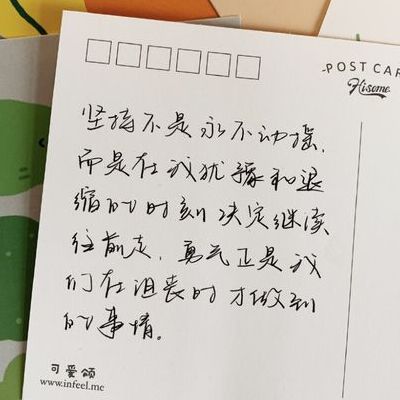 POST CAR
Hisome
坚持不是永不动摇,
而是在我犹豫和退
缩的时刻决定继续
往前走,勇气正是我
们在沮丧时才做到
的事情。
可爱颂
www.infeel.me